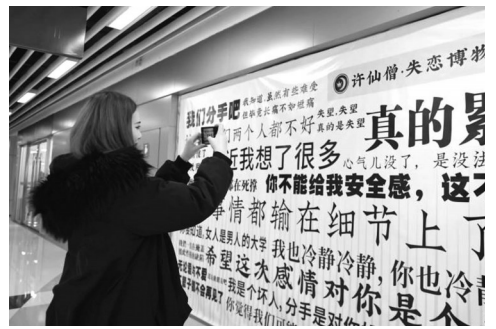 许仙僧·失恋博物
我们分手吧
我知道,虽然有些难受
但毕竟长痛不如短痛
们两个人都不好
失望,失望
真的是失望
真的累
近我想了很多
心气儿没了,是没法
都在死撑
你不能给我安全感,这
事情都输在细节上了
知道,女人是男人的大学
我也冷静冷静,你也冷静
希望这次感情对你是个
我是个坏人,分手是对你
你觉得我们可能